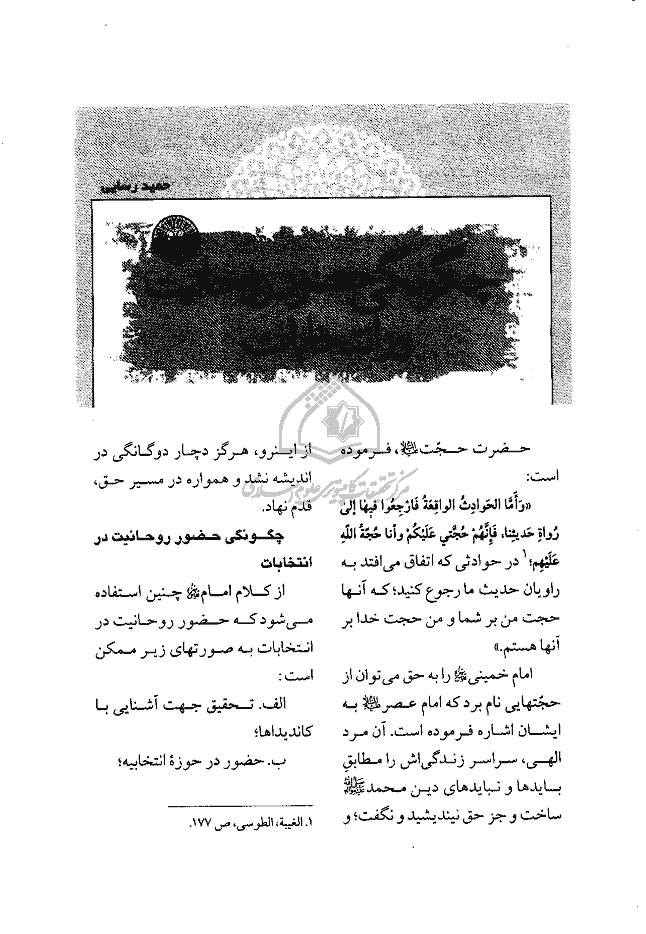 حمید رسایی
چگونگی حضور روحانیت
در انتخابات
حضرت حجّت﷼، فرموده
است:
«وَأَمَّا الحَوادِثُ الواقِعَةُ فَارْجِعُوا فيها إلىٰ
رُواةِ حَديثِنا، فَإنَّهُمْ حُجَّتي عَلَيْكُمْ وأنا حُجَّةُ اللَّهِ
عَلَيْهِم؛۱ در حوادثی که اتفاق می‌افتد به
راویان حدیث ما رجوع کنید؛ که آنها
حجت من بر شما و من حجت خدا بر
آنها هستم.»
امام خمینی را به حق می‌توان از
حجّتهایی نام برد که امام عصر به
ایشان اشاره فرموده است. آن مرد
الهی، سراسر زندگی‌اش را مطابقِ
بایدها و نبایدهای دین محمدﷺ
ساخت و جز حق نیندیشید و نگفت؛ و
از اینرو، هرگز دچار دوگانگی در
اندیشه نشد و همواره در مسیر حق،
قدم نهاد.
چگونگی حضور روحانیت در
انتخابات
از کلام امام چنین استفاده
می‌شود که حضور روحانیت در
انتخابات به صورتهای زیر ممکن
است:
الف. تحقیق جهت آشنایی با
کاندیداها؛
ب. حضور در حوزهٔ انتخابیه؛
۱. الغیبة، الطوسی، ص ۱۷۷.
مرکز تحقیقات کامپیوتری علوم اسلامی